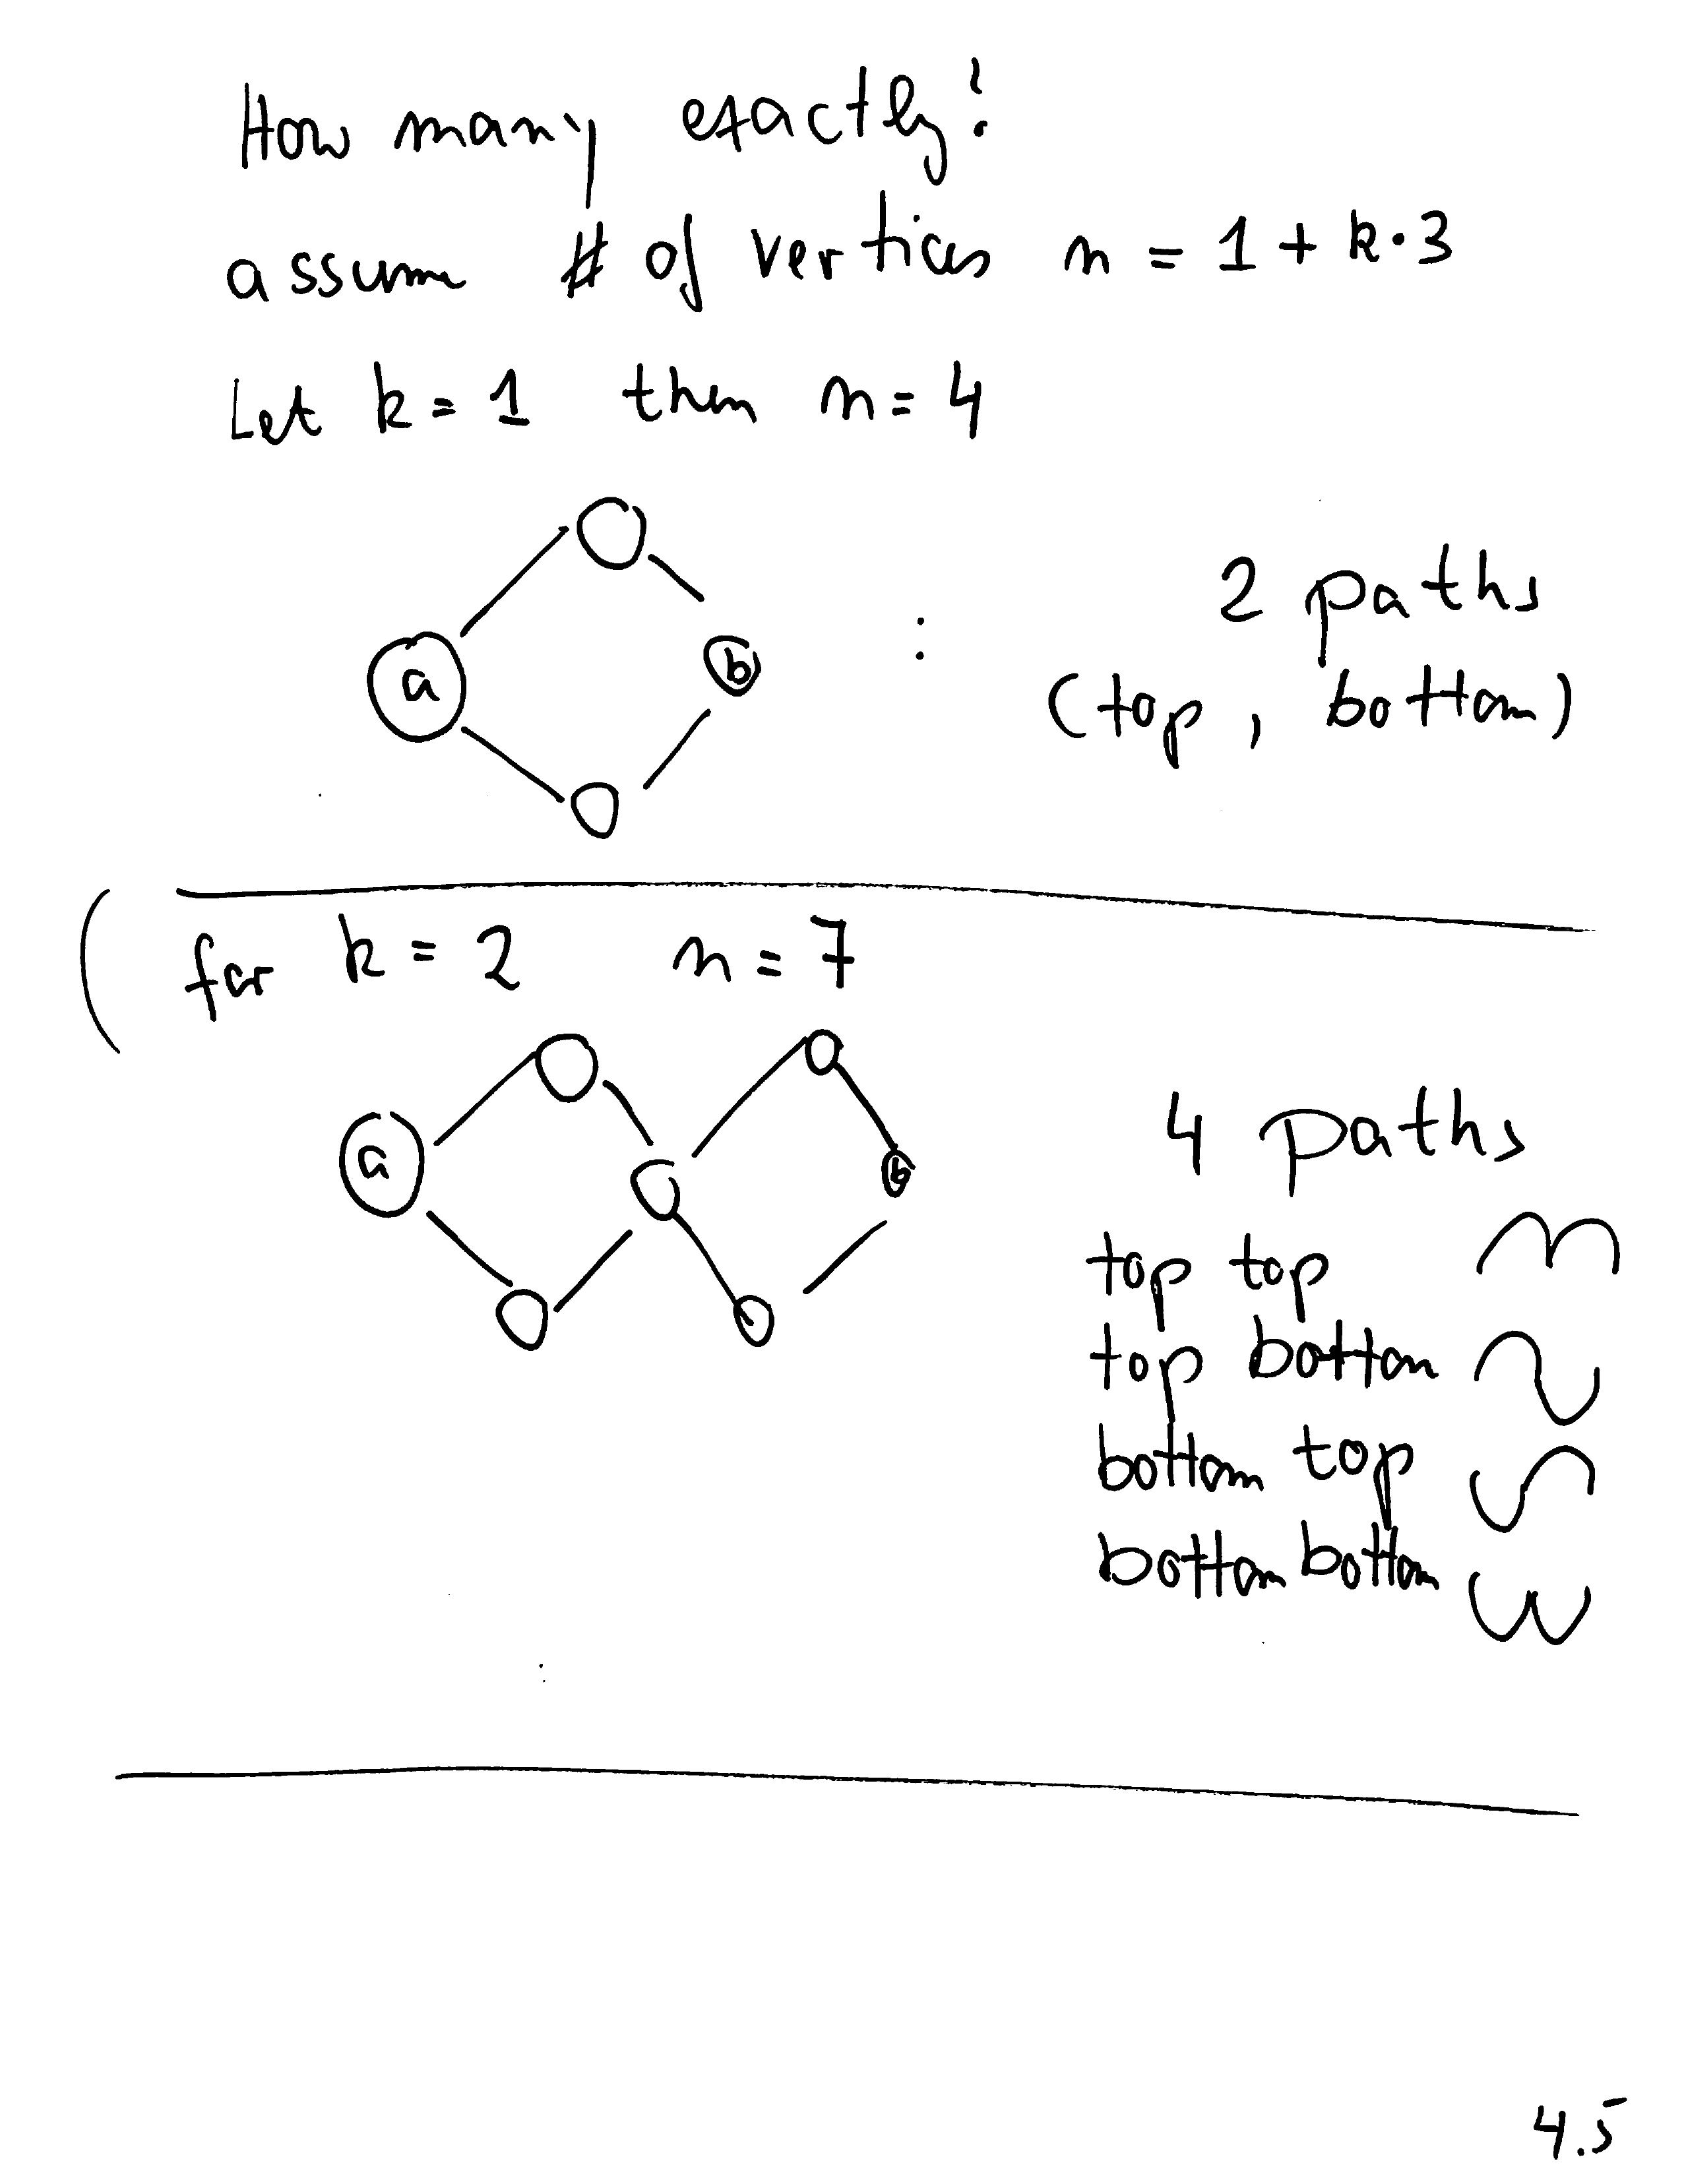 How many exactly?
assume # of vertices n = 1 + k·3
Let k = 1 then n = 4
a
b
:
2 paths
(top, bottom)
( for k = 2 n = 7
a
b
4 paths
top top
top bottom
bottom top
bottom bottom
4.5